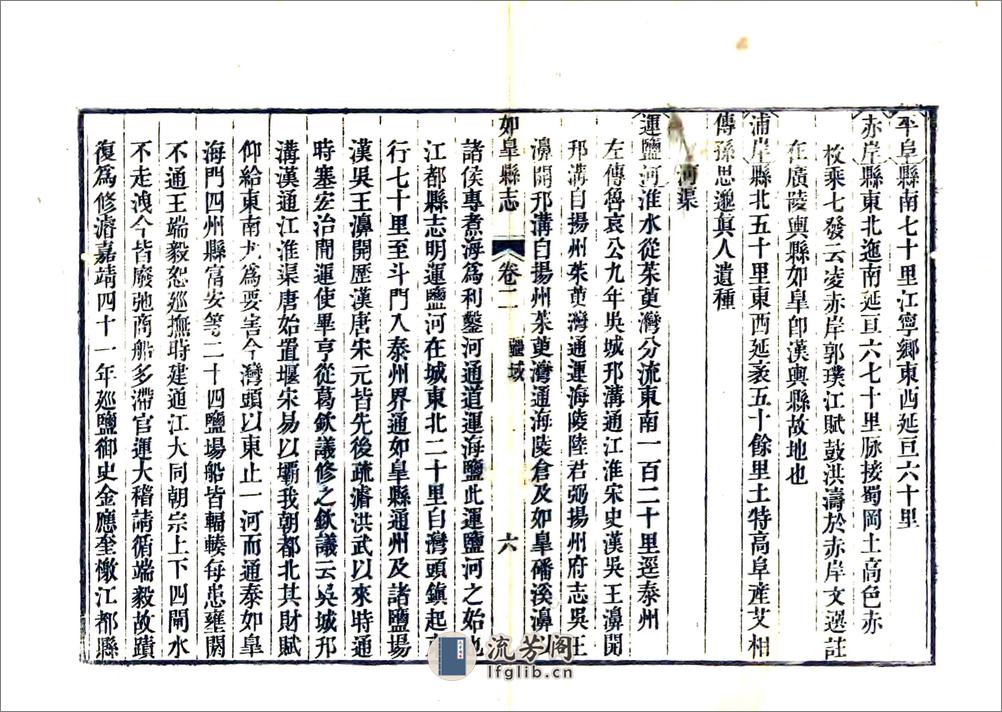 平阜縣南七十里江寧鄉東西延亘六十里
赤岸縣東北迤南延亘六七十里脉接蜀岡土高色赤
枚乘七發云凌赤岸郭璞江賦鼓洪濤於赤岸文選註
在廣陵輿縣如臯卽漢輿縣故地也
浦岸縣北五十里東西延袤五十餘里土特高阜産艾相
傳孫思邈眞人遺種
河渠
運鹽河淮水從茱萸灣分流東南一百二十里逕泰州
左傳魯哀公九年吳城邗溝通江淮宋史漢吳王濞開
邗溝自揚州茱萸灣通運海陵陸君弼揚州府志吳王
濞開邗溝自揚州茱萸灣通海陵倉及如臯磻溪濞以
如臯縣志
卷二
疆域
六
諸侯專煮海爲利鑿河通道運海鹽此運鹽河之始也
江都縣志明運鹽河在城東北二十里自灣頭鎮起
行七十里至斗門入泰州界通如臯縣通州及諸鹽場
漢吳王濞開歷漢唐宋元皆先後疏濬洪武以來時通
時塞宏治間運使畢亨從葛欽議修之欽議云吳城邗
溝漢通江淮渠唐始置堰宋易以壩我朝都北其財賦
仰給東南尤爲要害今灣頭以東止一河而通泰如臯
海門四州縣富安等二十四鹽場船皆輻輳每患壅閼
不通王端毅恕巡撫時建通江大同朝宗上下四閘水
不走洩今皆廢弛商船多滯官運大稽請循端毅故蹟
復爲修濬嘉靖四十一年巡鹽御史金應奎檄江都縣
流芳阁
lfglib.cn